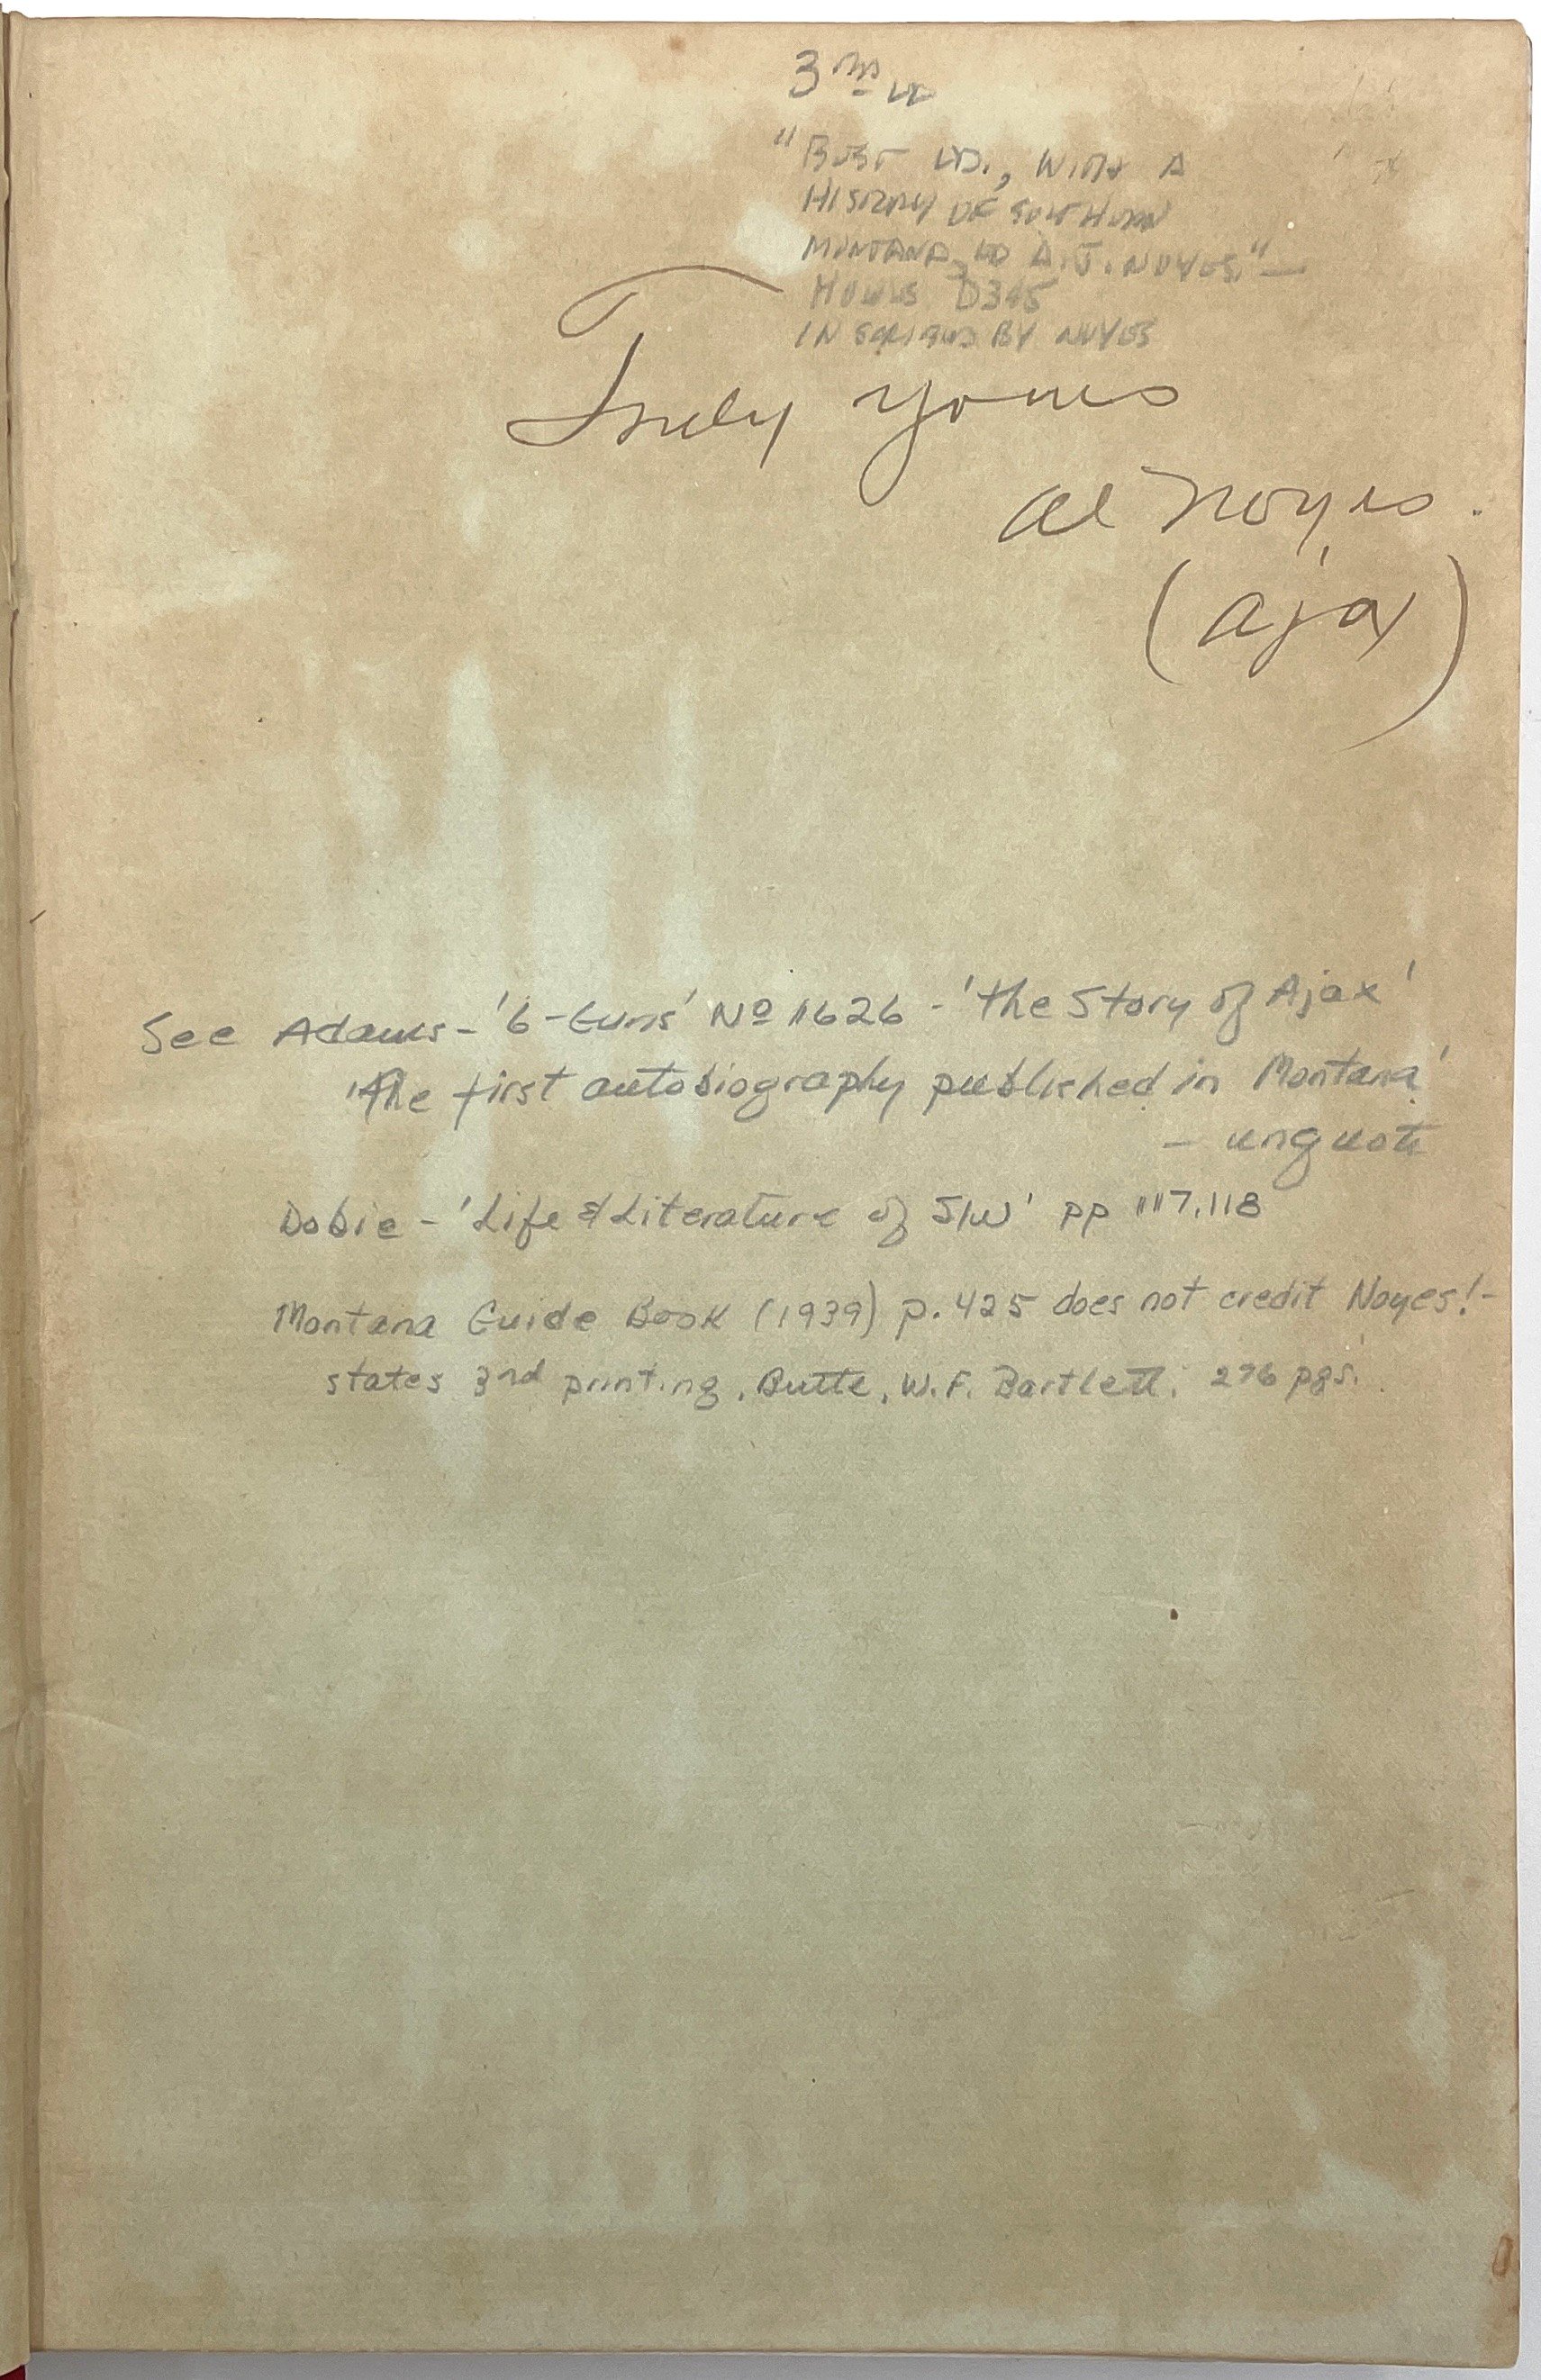 3RD ED
"BEST ED., WITH A
HISTORY OF SOUTHERN
MONTANA, ED A.J. NOYES." —
HOWES D345
INSCRIBED BY NOYES
Truly yours
Al Noyes.
(Ajax)
See Adams - '6-Guns' No 1626 - 'the Story of Ajax'
'The first autobiography published in Montana'
- unquote
Dobie - 'Life & Literature of S/W' pp 117, 118
Montana Guide Book (1939) p. 425 does not credit Noyes! -
states 3rd printing, Butte, W.F. Bartlett. 276 pgs.